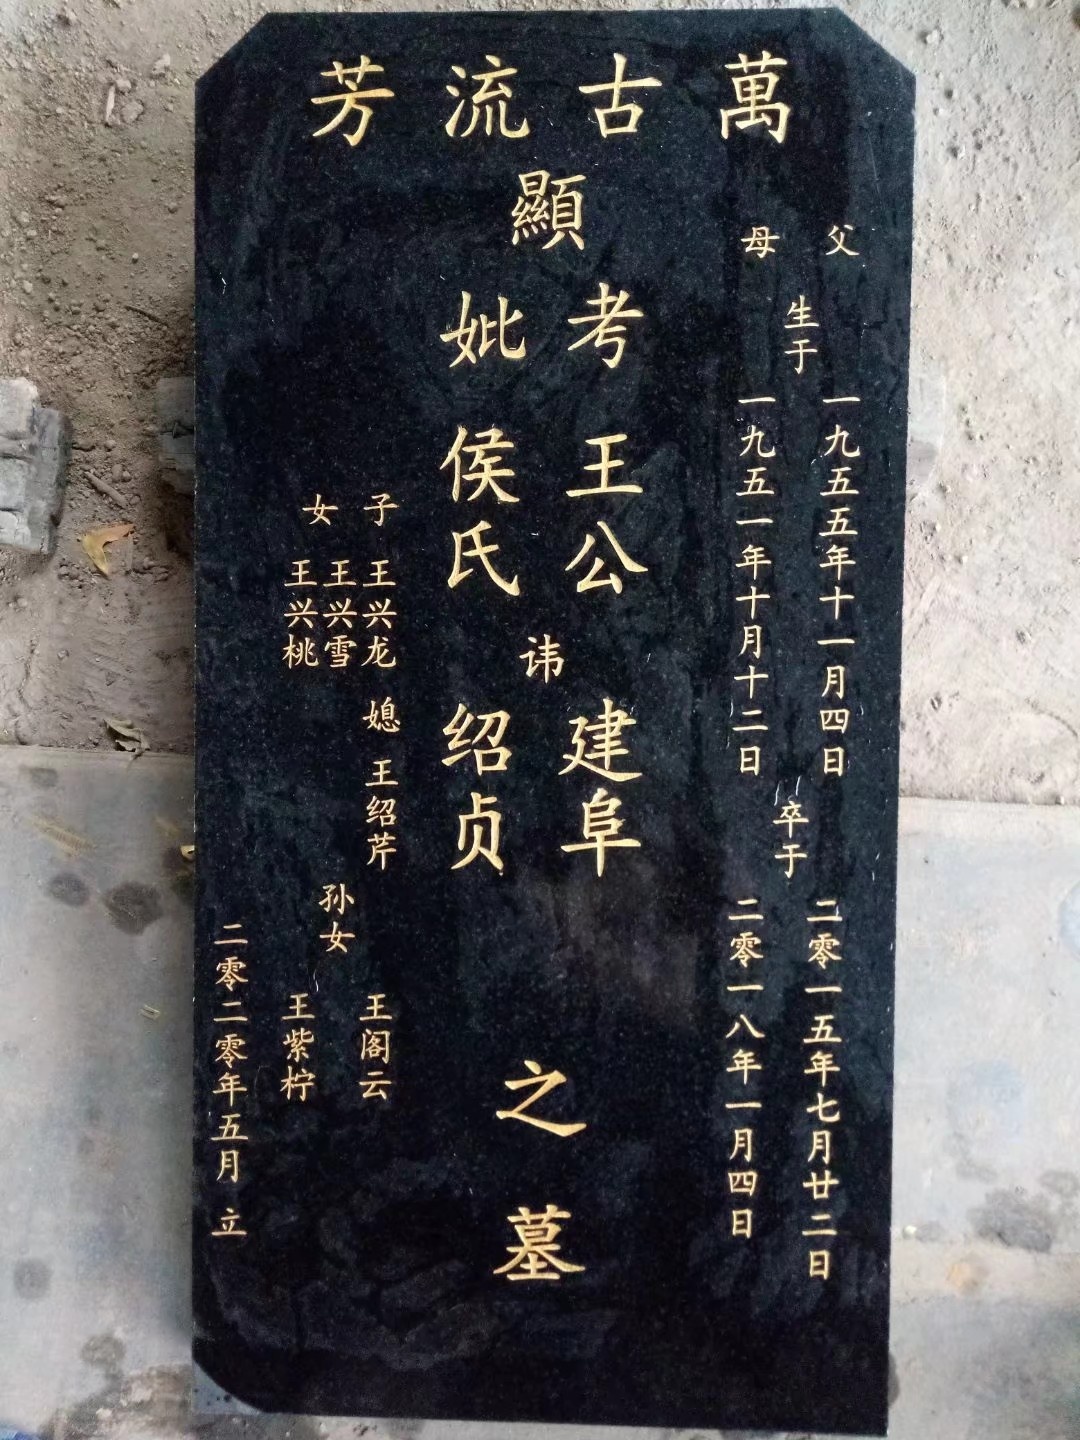 萬古流芳
父 生于 一九五五年十一月四日 卒于 二零一五年七月廿二日
母 一九五一年十月十二日 二零一八年一月四日
顯
考王公 讳 建阜
妣侯氏 绍贞
之墓
子 王兴龙 媳 王绍芹
女 王兴雪
王兴桃
孙女 王阁云
王紫柠
二零二零年五月 立